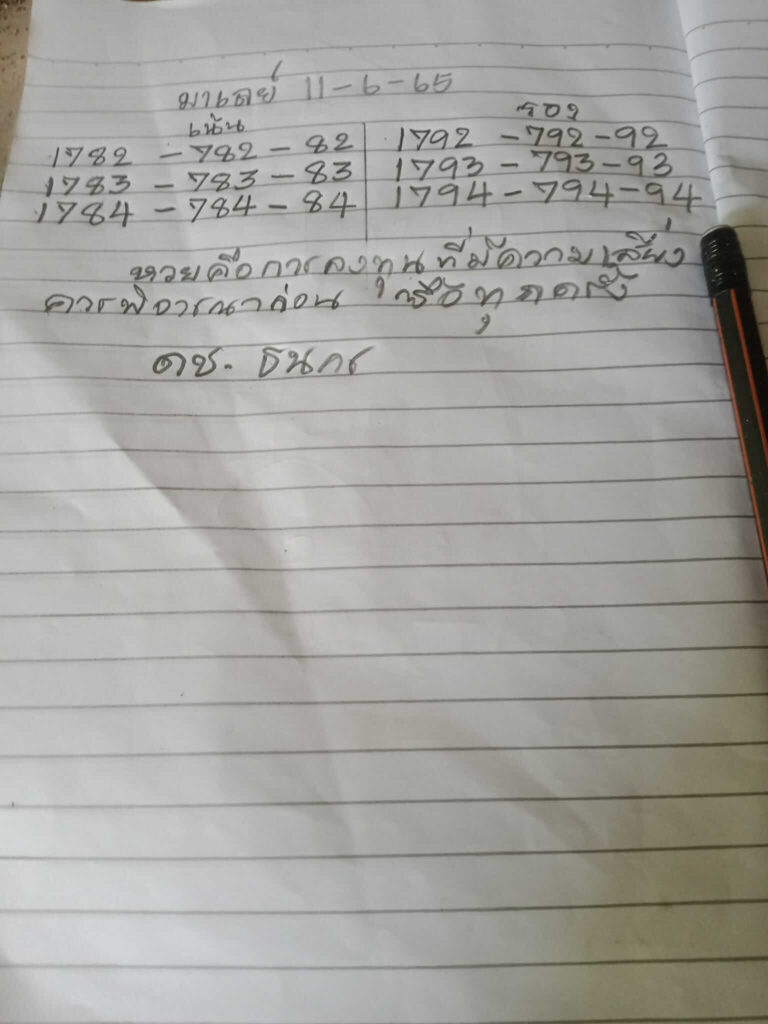 มาเลย์ 11-6-65
เน้น
1782 - 782 - 82
1783 - 783 - 83
1784 - 784 - 84
รอง
1792 - 792 - 92
1793 - 793 - 93
1794 - 794 - 94
หวยคือการลงทุนที่มีความเสี่ยง
ควรพิจารณาก่อน ซื้อทุกครั้ง
ดช. ธนกร